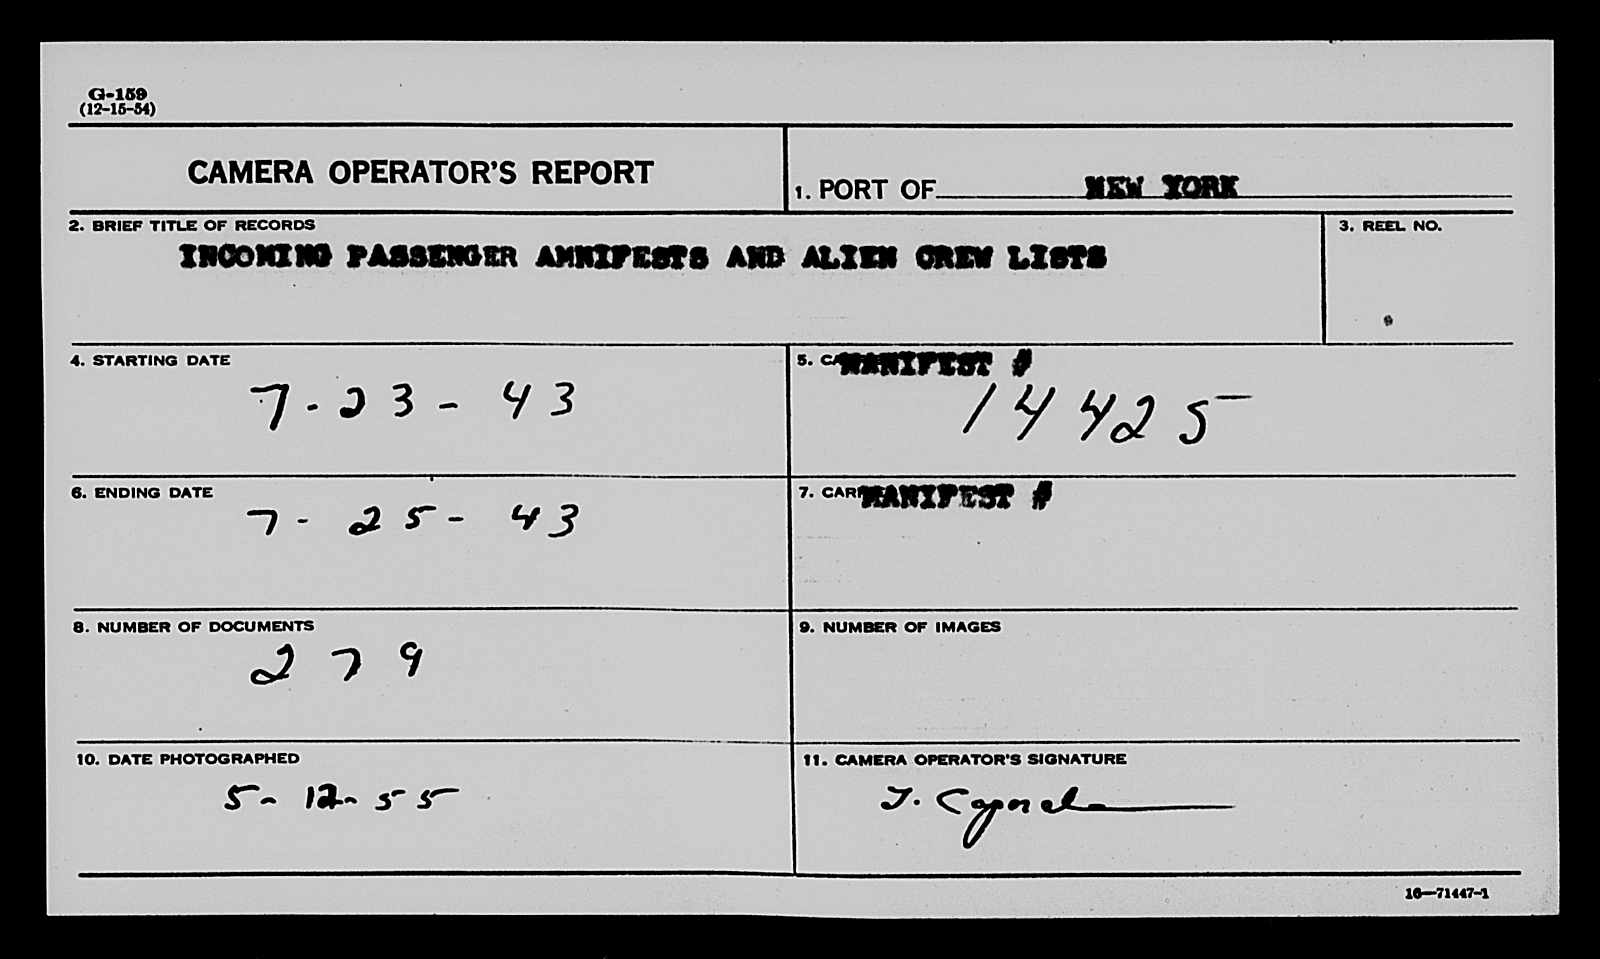 G-159
(12-15-54)
CAMERA OPERATOR'S REPORT
1. PORT OF NEW YORK
2. BRIEF TITLE OF RECORDS
INCOMING PASSENGER AMNIFESTS AND ALIEN CREW LISTS
3. REEL NO.
4. STARTING DATE
7-23-43
5. MANIFEST #
14425
6. ENDING DATE
7-25-43
7. MANIFEST #
8. NUMBER OF DOCUMENTS
279
9. NUMBER OF IMAGES
10. DATE PHOTOGRAPHED
5-12-55
11. CAMERA OPERATOR'S SIGNATURE
16—71447-1